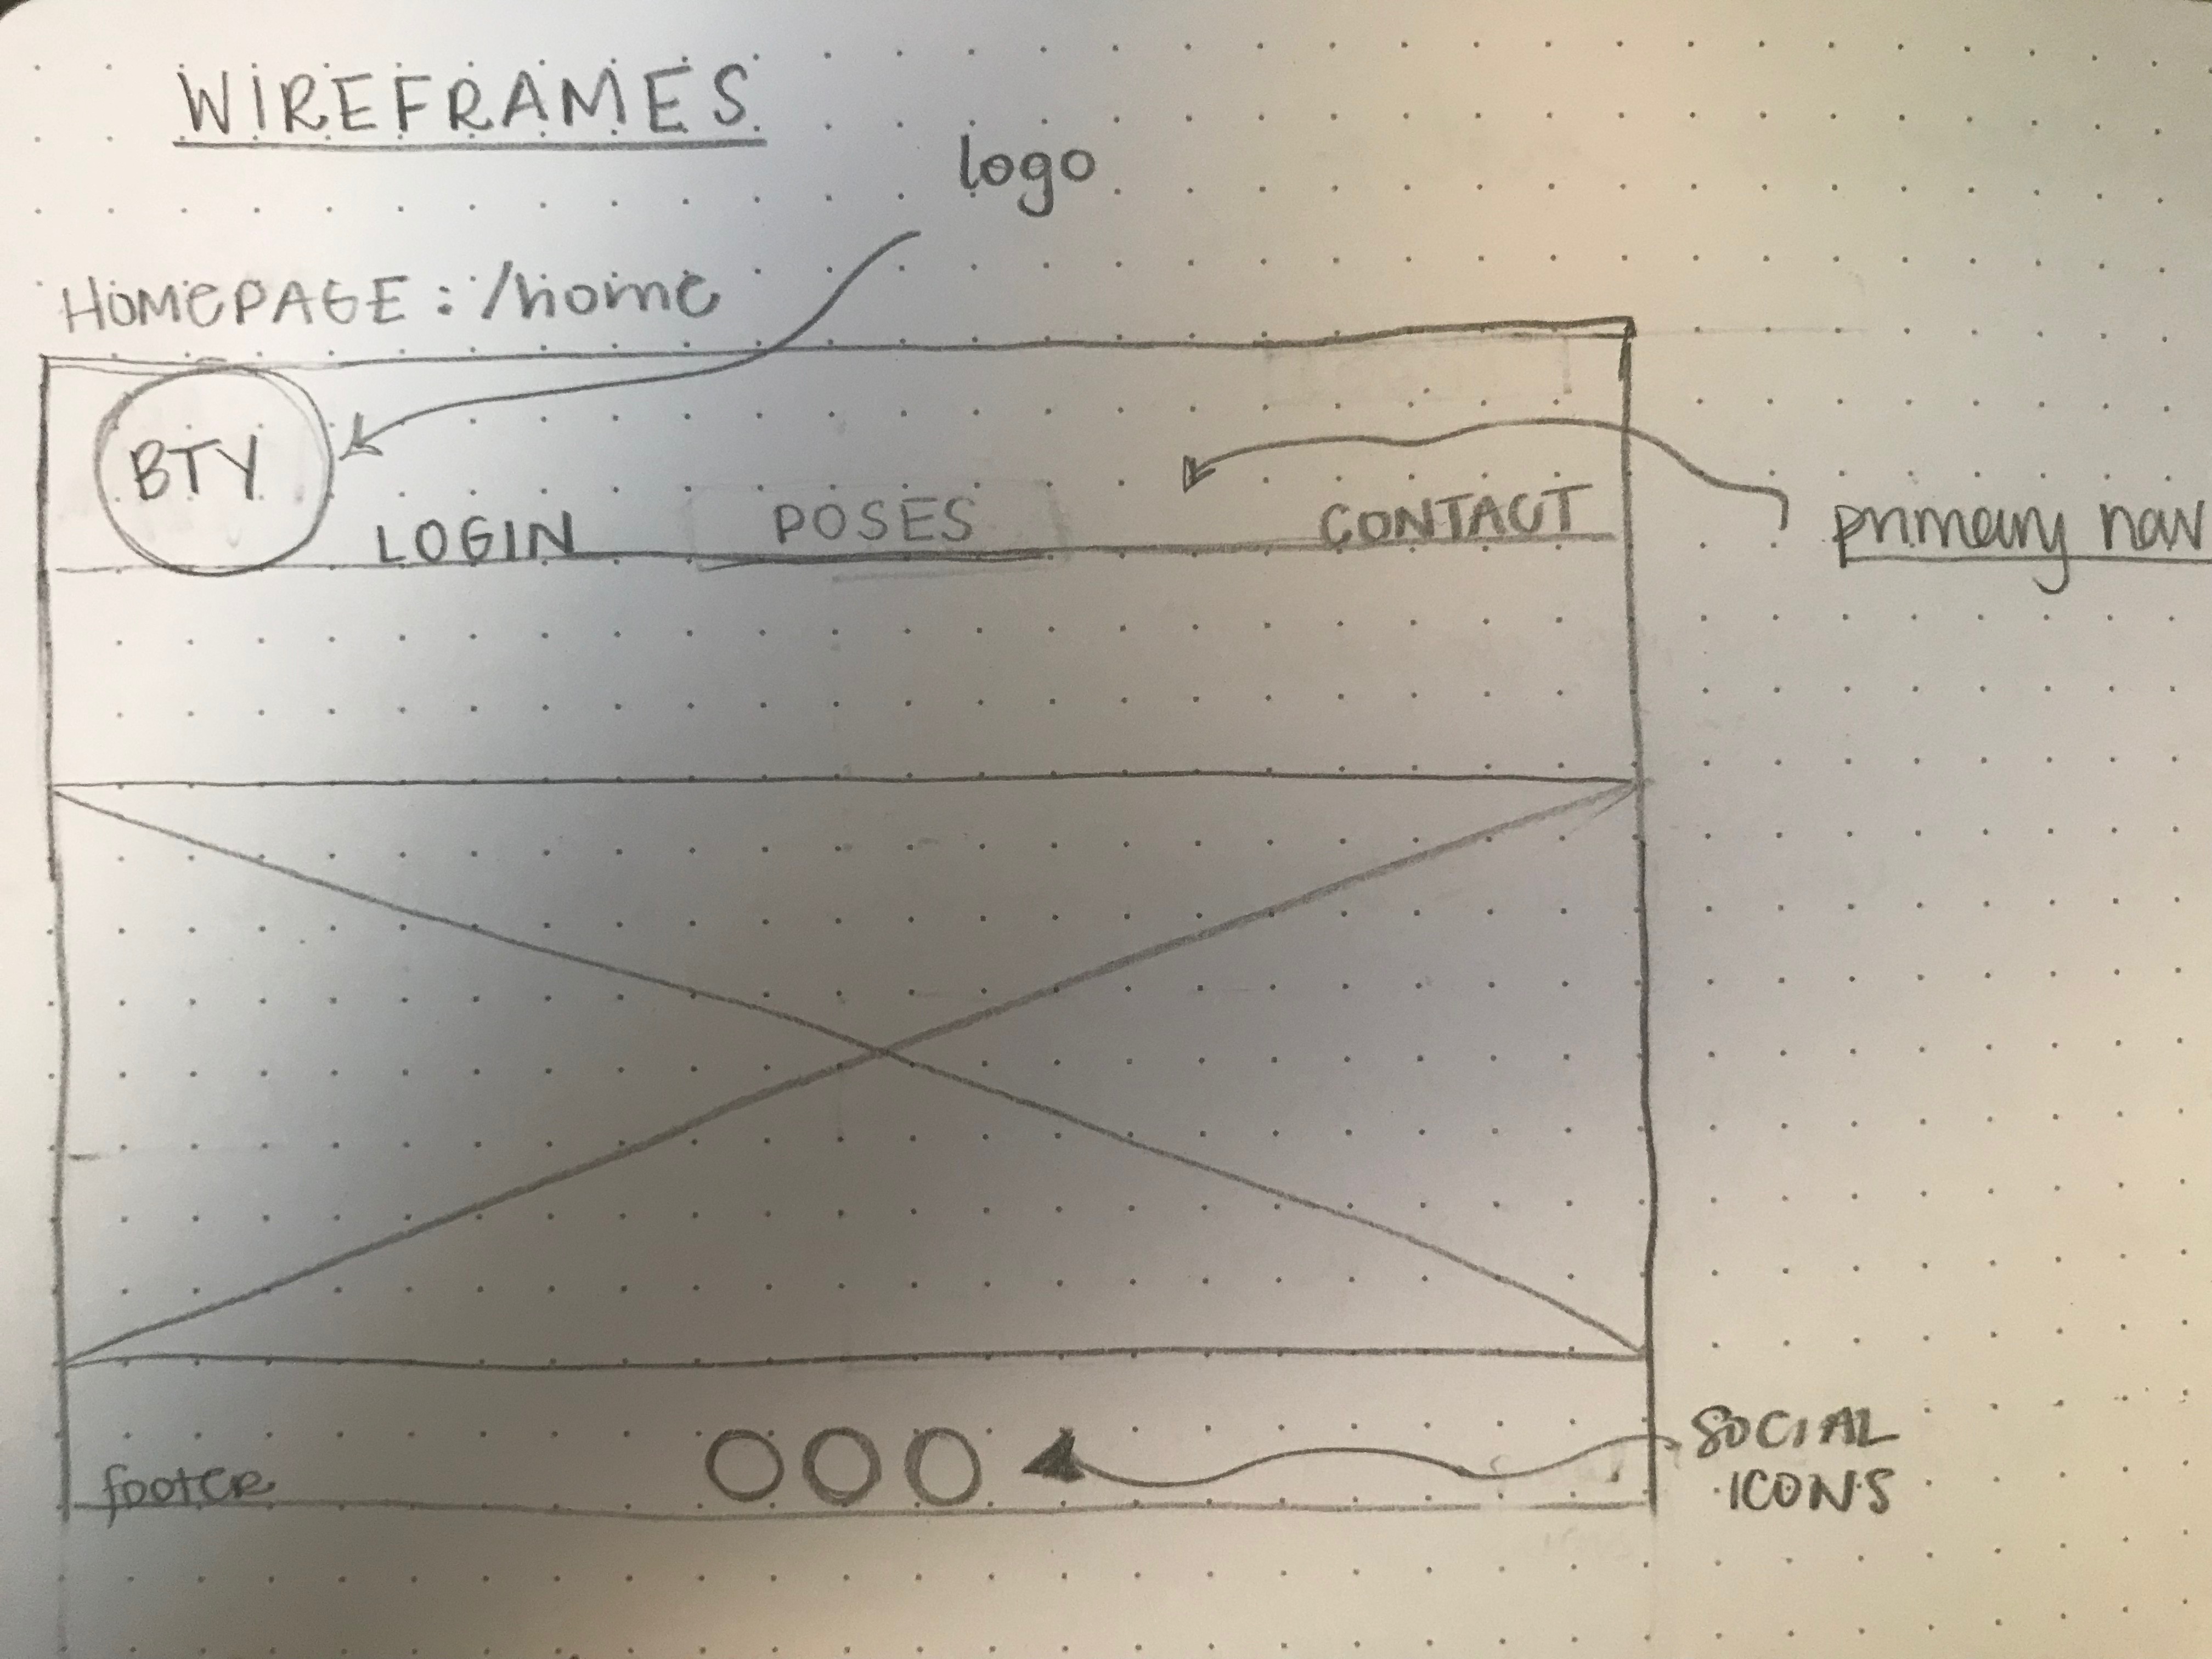 WIREFRAMES
logo
HOMEPAGE: /home
BTY
LOGIN POSES CONTACT
primary nav
SOCIAL
ICONS
footer